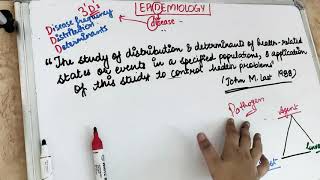 3 D's
EPIDEMIOLOGY
Disease frequency
Distribution
Determinants
disease
"The study of distribution & determinants of health-related
states or event in a specified populations, & application
of this study to control health problems"
(John M. Last 1988)
Pathogen
Agent